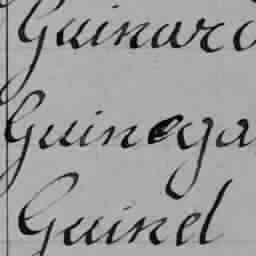 Guinard
Guinoga
Guinel